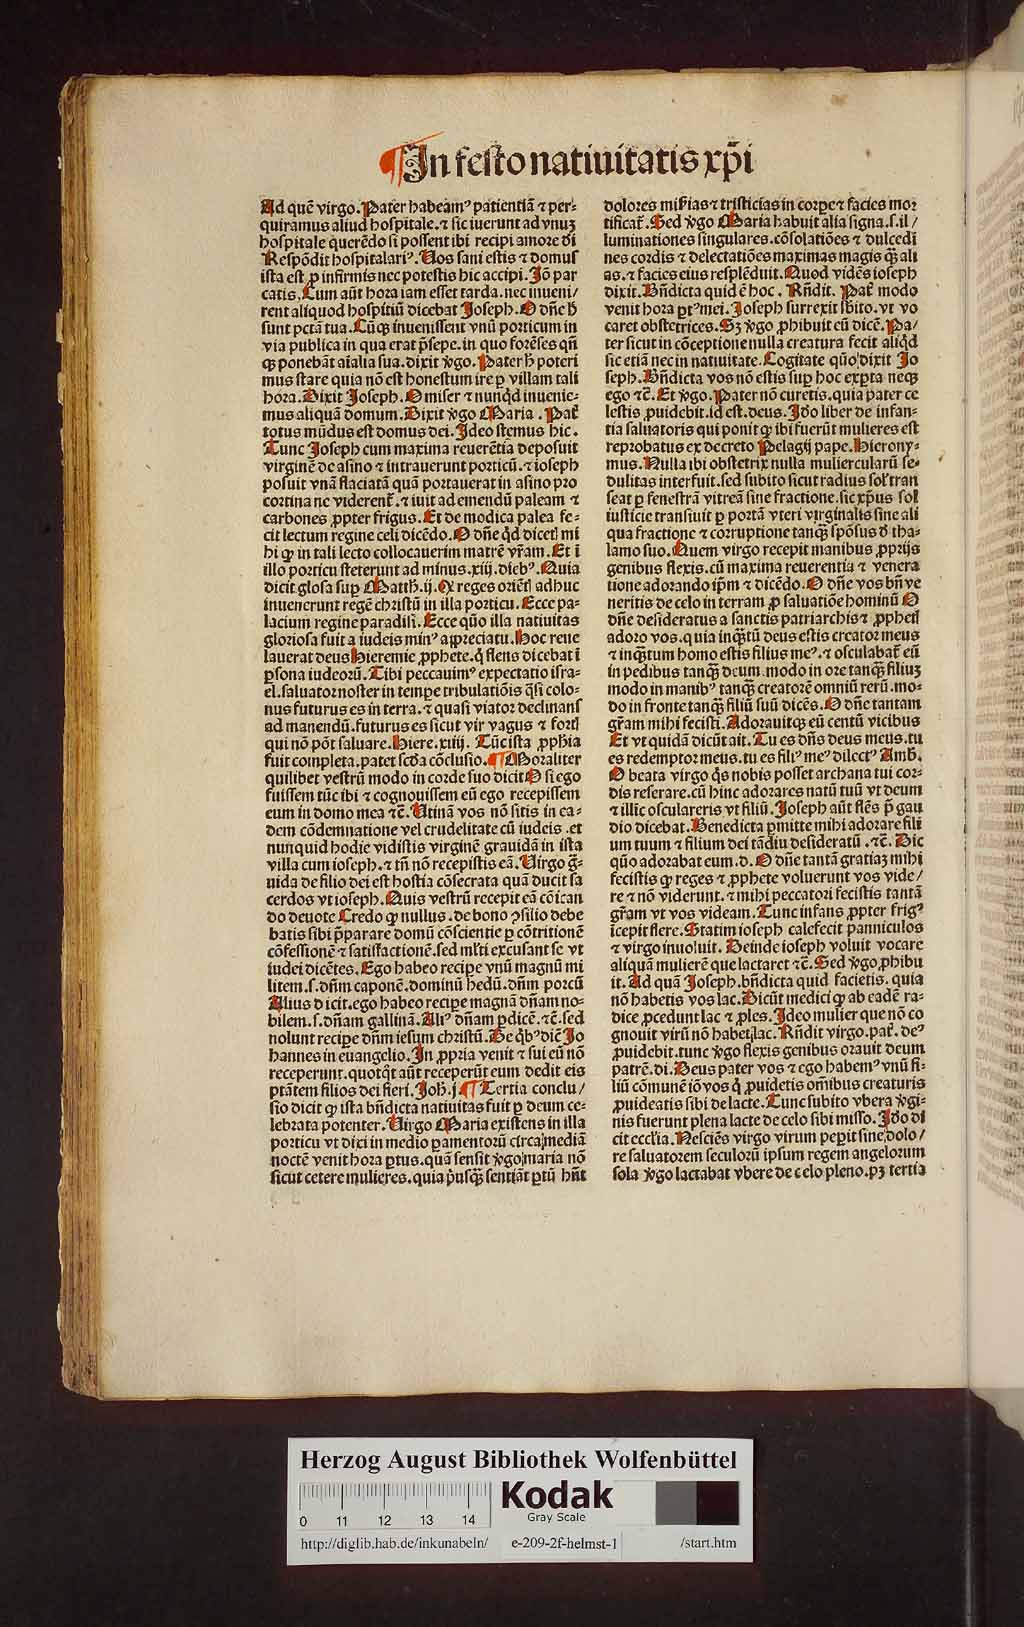 ¶In festo natiuitatis xp̄i
Ad quē virgo. Pater habeamꝰ patientiā ⁊ per-
quiramus aliud hospitale. ⁊ sic iuerunt ad vnuꝫ
hospitale querēdo si possent ibi recipi amore d̄i
Respōdit hospitalariꝰ. Uos sani estis ⁊ domus
ista est ꝓ infirmis nec potestis hic accipi. Iō par
catis. Cum aūt hora iam esset tarda. nec inueni/
rent aliquod hospitiū dicebat Joseph. O dn̄e h̄
sunt pctā tua. Cūqꝫ inuenissent vnū porticum in
via publica in qua erat p̄sepe. in quo forēses qn̄
qꝫ ponebāt aīalia sua. dixit v̓go. Pater h̄ poteri
mus stare quia nō est honestum ire ꝑ villam tali
hora. Dixit Joseph. O miser ⁊ nunqͥd inuenie-
mus aliquā domum. Dixit v̓go Maria. Pat̄
totus mūdus est domus dei. Ideo stemus hic.
Tunc Joseph cum maxima reuerētia deposuit
virginē de asino ⁊ intrauerunt porticū. ⁊ ioseph
posuit vnā flaciatā quā portauerat in asino pro
cortina ne viderent̄. ⁊ iuit ad emendū paleam ⁊
carbones ꝓpter frigus. Et de modica palea fe-
cit lectum regine celi dicēdo. O dn̄e qͥd dicet̄ mi
hi ꝙ in tali lecto collocauerim matrē vr̄am. Et ī
illo porticu steterunt ad minus. xiij. diebꝰ. Quia
dicit glosa suꝑ Matth. ij. Q reges oriēt̄ adhuc
inuenerunt regē christū in illa porticu. Ecce pa-
lacium regine paradisi. Ecce quō illa natiuitas
gloriosa fuit a iudeis minꝰ appreciatu. Hoc reue
lauerat deus Hieremie ꝓphete. q̄ flens dicebat ī
ꝑsona iudeorū. Tibi peccauimꝰ expectatio isra-
el. saluator noster in tempe tribulatiōis q̄si colo-
nus futurus es in terra. ⁊ quasi viator declinans
ad manendū. futurus es sicut vir vagus ⁊ fort̄
qui nō pōt saluare. Hiere. xiiij. Tūc ista ꝓphīa
fuit completa. patet scd̄a cōclusio. ¶Moraliter
quilibet vestrū modo in corde suo dicit O si ego
fuissem tūc ibi ⁊ cognouissem eū ego recepissem
eum in domo mea ⁊c̄. Utinā vos nō sitis in ea-
dem cōdemnatione vel crudelitate cū iudeis. et
nunquid hodie vidistis virginē grauidā in ista
villa cum ioseph. ⁊ tn̄ nō recepistis eā. Uirgo ḡ-
uida de filio dei est hostia cōsecrata quā ducit sa
cerdos vt ioseph. Quis vestrū recepit eā cōican
do deuote Credo ꝙ nullus. de bono ꝯsilio debe
batis sibi p̄parare domū cōscientie ꝑ cōtritionē
cōfessionē ⁊ satisfactionē. sed ml̓ti excusant se vt
iudei dicētes. Ego habeo recipe vnū magnū mi
litem. s. dn̄m caponē. dominū hedū. dn̄m porcū
Alius dicit. ego habeo recipe magnā dn̄am no-
bilem. s. dn̄am gallinā. Aliꝰ dn̄am ꝑdicē. ⁊c̄. sed
nolunt recipe dn̄m iesum christū. De qͥbꝰ dic̄ Jo
hannes in euangelio. In ꝓpria venit ⁊ sui eū nō
receperunt. quotqͦt aūt receperūt eum dedit eis
ptātem filios dei fieri. Joh. j ¶Tertia conclu/
sio dicit ꝙ ista bn̄dicta natiuitas fuit ꝑ deum ce-
lebrata potenter. Uirgo Maria existens in illa
porticu vt dixi in medio ꝑamentorū circa mediā
noctē venit hora ꝑtus. quā sensit v̓go maria nō
sicut cetere mulieres. quia p̄usqꝫ sentiāt ꝑtū hn̄t
dolores mis̓ias ⁊ tristicias in corpe ⁊ facies mor
tificat̄. Sed v̓go Maria habuit alia signa. s. il/
luminationes singulares. cōsolatiōes ⁊ dulcedi
nes cordis ⁊ delectatiōes maximas magis qꝫ̄ ali
as. ⁊ facies eius resplēduit. Quod vidēs ioseph
dixit. Bn̄dicta quid ē hoc. Rn̄dit. Pat̄ modo
venit hora ꝑtꝰ mei. Joseph surrexit sb̄ito. vt vo
caret obstetrices. Sꝫ v̓go ꝓhibuit eū dicē. Pa/
ter sicut in cōceptione nulla creatura fecit aliqͥd
sic etiā nec in natiuitate. Cogitate quō dixit Jo
seph. Bn̄dicta vos nō estis suꝑ hoc exꝑta neqꝫ
ego ⁊c̄. Et v̓go. Pater nō curetis. quia pater ce
lestis ꝓuidebit. id est. deus. Idō liber de infan-
tia saluatoris qui ponit ꝙ ibi fuerūt mulieres est
reprobatus ex decreto Pelagij pape. Hierony-
mus. Nulla ibi obstetrix nulla muliercularū se-
dulitas interfuit. sed subito sicut radius sol̓ tran
seat ꝑ fenestrā vitreā sine fractione. sic xp̄us sol
iusticie transiuit ꝑ portā vteri virginalis sine ali
qua fractione ⁊ corruptione tanqꝫ̄ spōsus d̓ tha-
lamo suo. Quem virgo recepit manibus ꝓprijs
genibus flexis. cū maxima reuerentia ⁊ venera
tione adorando ip̄m ⁊ dicēdo. O dn̄e vos bn̄ ve
neritis de celo in terram ꝓ saluatiōe hominū O
dn̄e desideratus a sanctis patriarchis ⁊ ꝓphet̄
adoro vos. quia inqꝫ̄tū deus estis creator meus
⁊ inqꝫ̄tum homo estis filius meꝰ. ⁊ osculabat̄ eū
in pedibus tanqꝫ̄ deum. modo in ore tanqꝫ̄ filiuꝫ
modo in manibꝰ tanqꝫ̄ creatorē omniū rerū. mo-
do in fronte tanqꝫ̄ filiū suū dicēs. O dn̄e tantam
gr̄am mihi fecisti. Adorauitqꝫ eū centū vicibus
Et vt quidā dicūt ait. Tu es dn̄s deus meus. tu
es redemptor meus. tu es filiꝰ meꝰ dilectꝰ Amb̄.
O beata virgo q̄s nobis posset archana tui cor-
dis reserare. cū hinc adorares natū tuū vt deum
⁊ illīc osculareris vt filiū. Joseph aūt flēs p̄ gau
dio dicebat. Benedicta ꝑmitte mihi adorare fili
um tuum ⁊ filium dei tādiu desideratū. ⁊c̄. Dic
quō adorabat eum. d. O dn̄e tantā gratiaꝫ mihi
fecistis ꝙ reges ⁊ ꝓphete voluerunt vos vide/
re ⁊ nō viderunt. ⁊ mihi peccatori fecistis tantā
gr̄am vt vos videam. Tunc infans ꝓpter frigꝰ
īcepit flere. Statim ioseph calefecit panniculos
⁊ virgo inuoluit. Deinde ioseph voluit vocare
aliquā mulierē que lactaret ⁊c̄. Sed v̓go ꝓhibu
it. Ad quā Joseph. bn̄dicta quid facietis. quia
nō habetis vos lac. Dicūt medici ꝙ ab eadē ra-
dice ꝓcedunt lac ⁊ ꝓles. Ideo mulier que nō co
gnouit virū nō habet lac. Rn̄dit virgo. pat̄. deꝰ
ꝓuidebit. tunc v̓go flexis genibus orauit deum
patrē. di. Deus pater vos ⁊ ego habemꝰ vnū fi-
liū cōmunē iō vos q̄ ꝓuidetis om̄ibus creaturis
ꝓuideatis sibi de lacte. Tunc subito vbera v̓gi-
nis fuerunt plena lacte de celo sibi misso. Idō di
cit eccl̓ia. Nesciēs virgo virum peperit sine dolo/
re saluatorem seculorū ipsum regem angelorum
sola v̓go lactabat vbere de celo pleno. pꝫ tertia
Herzog August Bibliothek Wolfenbüttel
Kodak
Gray Scale
0 11 12 13 14
http://diglib.hab.de/inkunabeln/ e-209-2f-helmst-1 /start.htm